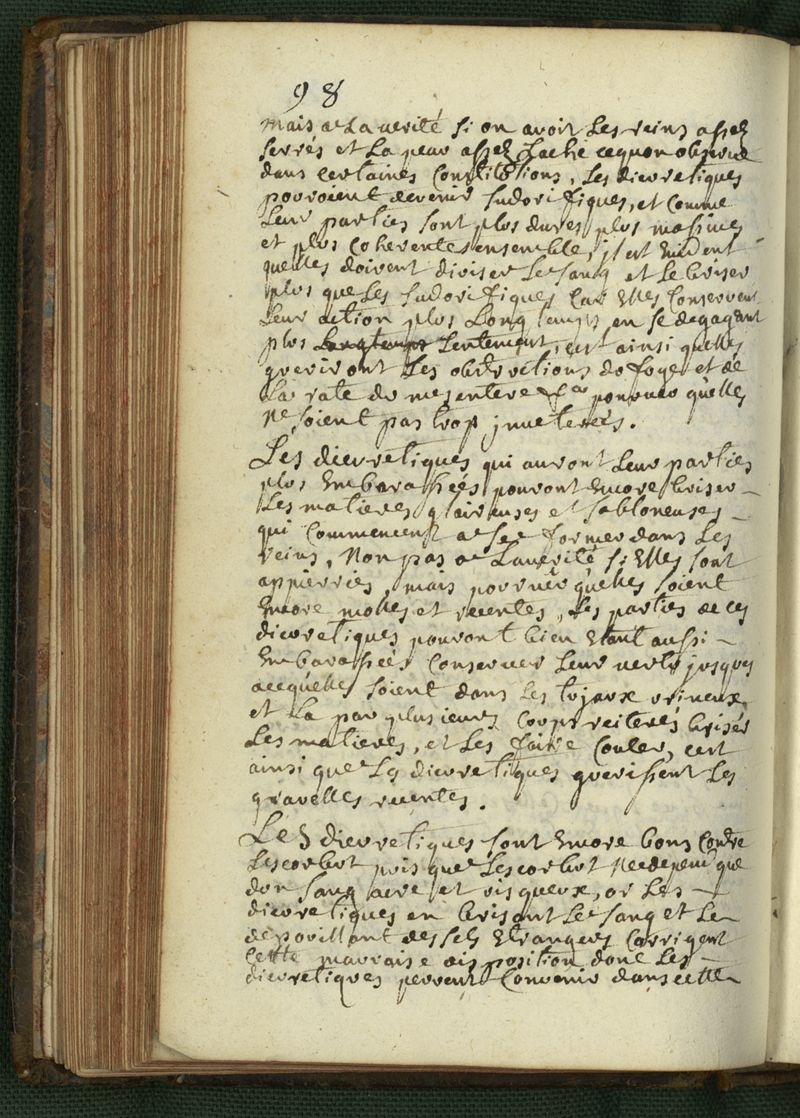 98
mais a la verité si on avoit les reins assez
serrés et la peau assez lache cequon observe
dans certaines constitutions, les diuretiques
pouroient devenir sudorifiques, et comme
leur parties sont plus dures plus massives
et plus coherentes ensemble, il est evident
quelles doivent diviser le sang et le briser
plus que les sudorifiques car elles conservent
leur action plus long temps en se degageant
plus longtemps lentement, cest ainsi quelles
gueriront les obstructions du foye et de
la rate du mesentere &ca pourveu quelles
ne soient pas trop inveterées.
Les diuretiques qui auront leur parties
plus embarassées pouront encore briser
les matieres glaireuses et sabloneuses
qui commencent a se former dans les
reins, non pas a la verité si elles sont
appierries, mais pourveu quelles soient
encore molles et recentes, les parties de ces
diuretiques pouront bien etant aussi
embarassées conserver leur vertu jusques
acequelles soient dans les tujaux urineux
et la par plusieurs coups reiterés briser
les matieres, et les faire couler, cest
ainsi que les diuretiques guerissent les
gravelles recentes.
Les diuretiques sont encore bons contre
lescorbut puis que lescorbut ne depend que
dun sang acre et visqueux, or les
diuretiques en brisant le sang et le
depouillant des sels etrangers corrigent
cette mauvaise disposition donc les
diuretiques peuvent convenir dans cette